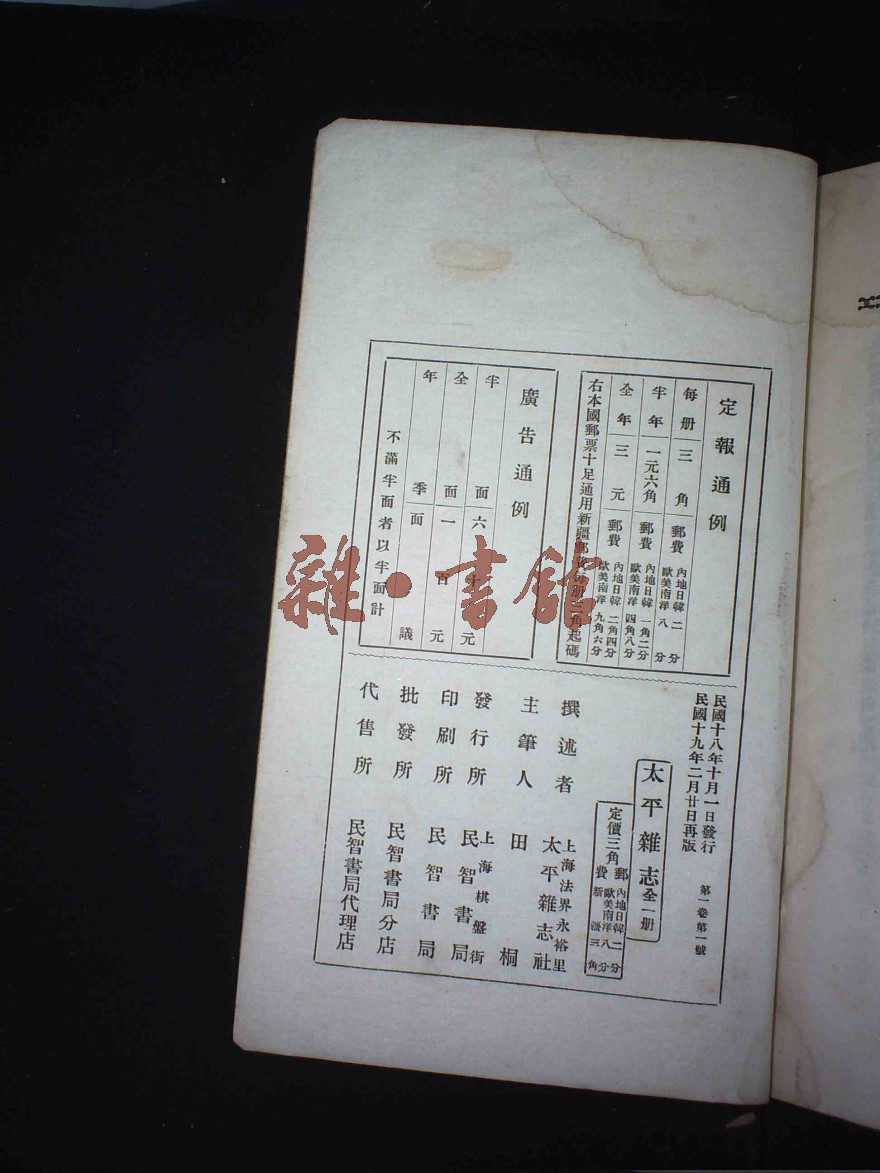 定報通例
每册 三角 郵費 內地日韓 二分 歐美南洋 八分
半年 一元六角 郵費 內地日韓 一角二分 歐美南洋 四角八分
全年 三元 郵費 內地日韓 二角四分 歐美南洋 九角六分
右本國郵票十足通用新疆郵費每册三角起碼
廣告通例
半面 六十元
全面 一百元
年季面議
不滿半面者以半面計
民國十八年十月一日發行
民國十九年二月廿日再版
第一卷第一號
太平雜志全一册
定價三角 郵費 內地日韓 二分 歐美南洋 八分 新疆 三角
撰述者 上海法界永裕里 太平雜志社
主筆人 田桐
發行所 上海棋盤街 民智書局
印刷所 民智書局
批發所 民智書局分店
代售所 民智書局代理店
雜·書館